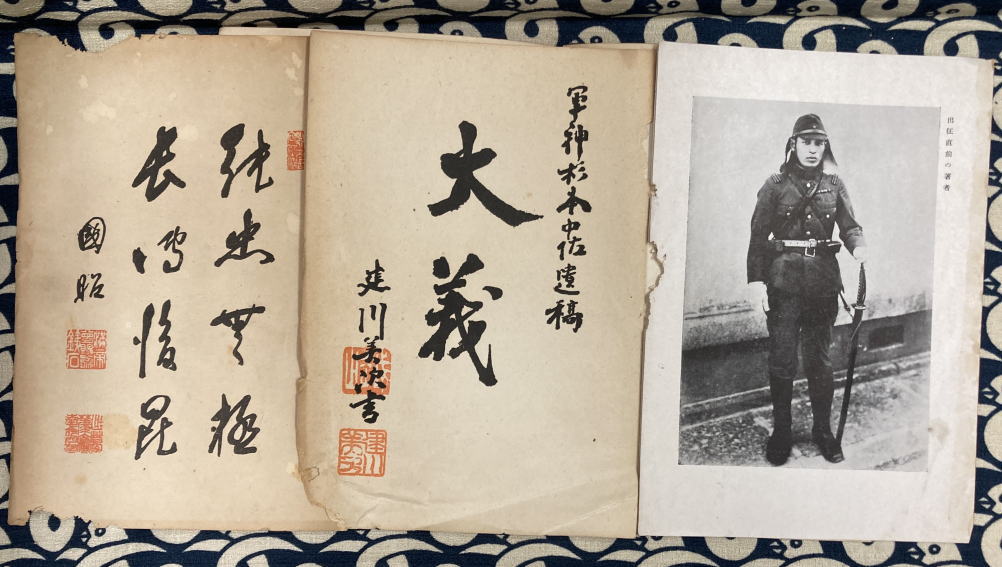 出征直前の著者
軍神杉本中佐遺稿
大義
建川美次書
純忠無極
長 後昆
國昭